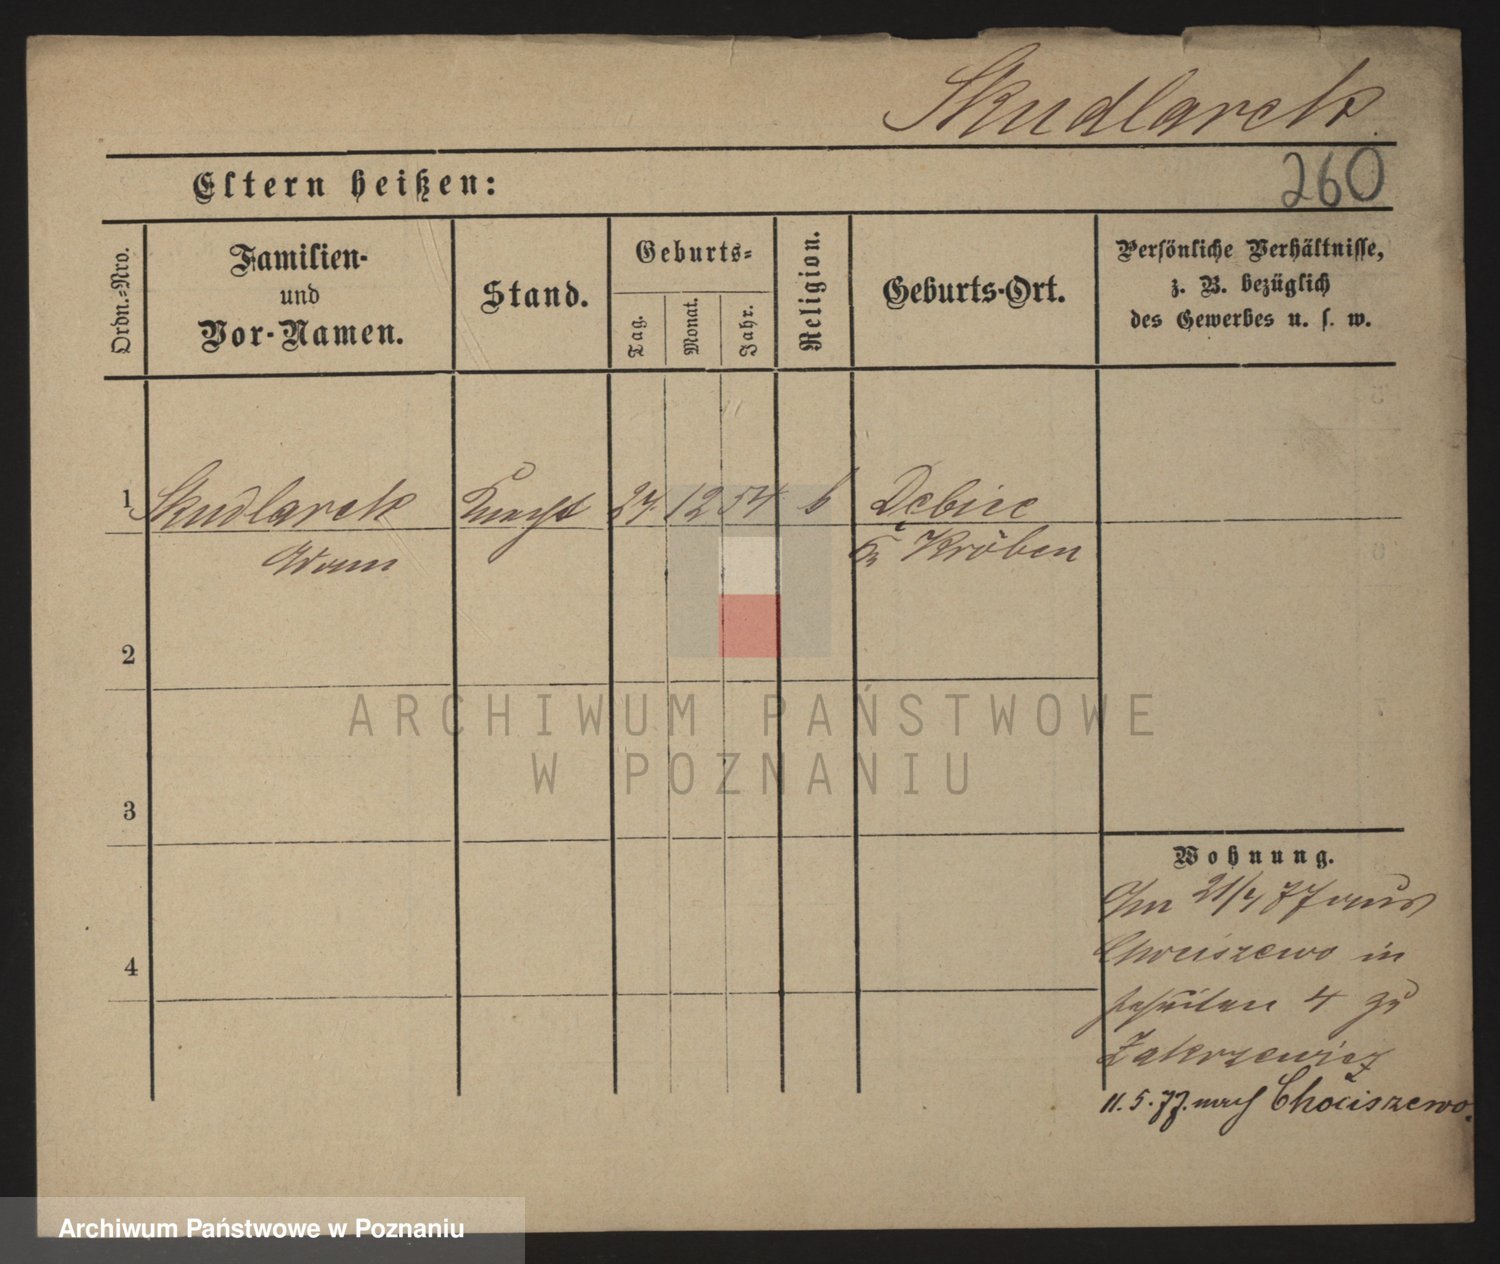 Skudlarek
Eltern heißen:
260
Ordn.-Nro.
Familien-
und
Vor-Namen.
Stand.
Geburts-
Tag.
Monat.
Jahr.
Religion.
Geburts-Ort.
Persönliche Verhältnisse,
z. B. bezüglich
des Gewerbes u. s. w.
1 Skudlarek Knecht 24 12 54 k Debiec
Adam Kr Kröben
2
3
4
Wohnung.
Am 21/4 77 aus
Chociszewo in
4 zu
Zakrzewicz
11. 5. 77. nach Chociszewo.
ARCHIWUM PAŃSTWOWE
W POZNANIU
Archiwum Państwowe w Poznaniu